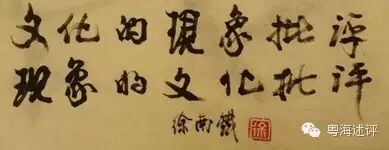 文化的現象批評
现象的文化批评
徐南鐵
徐
粤海述评